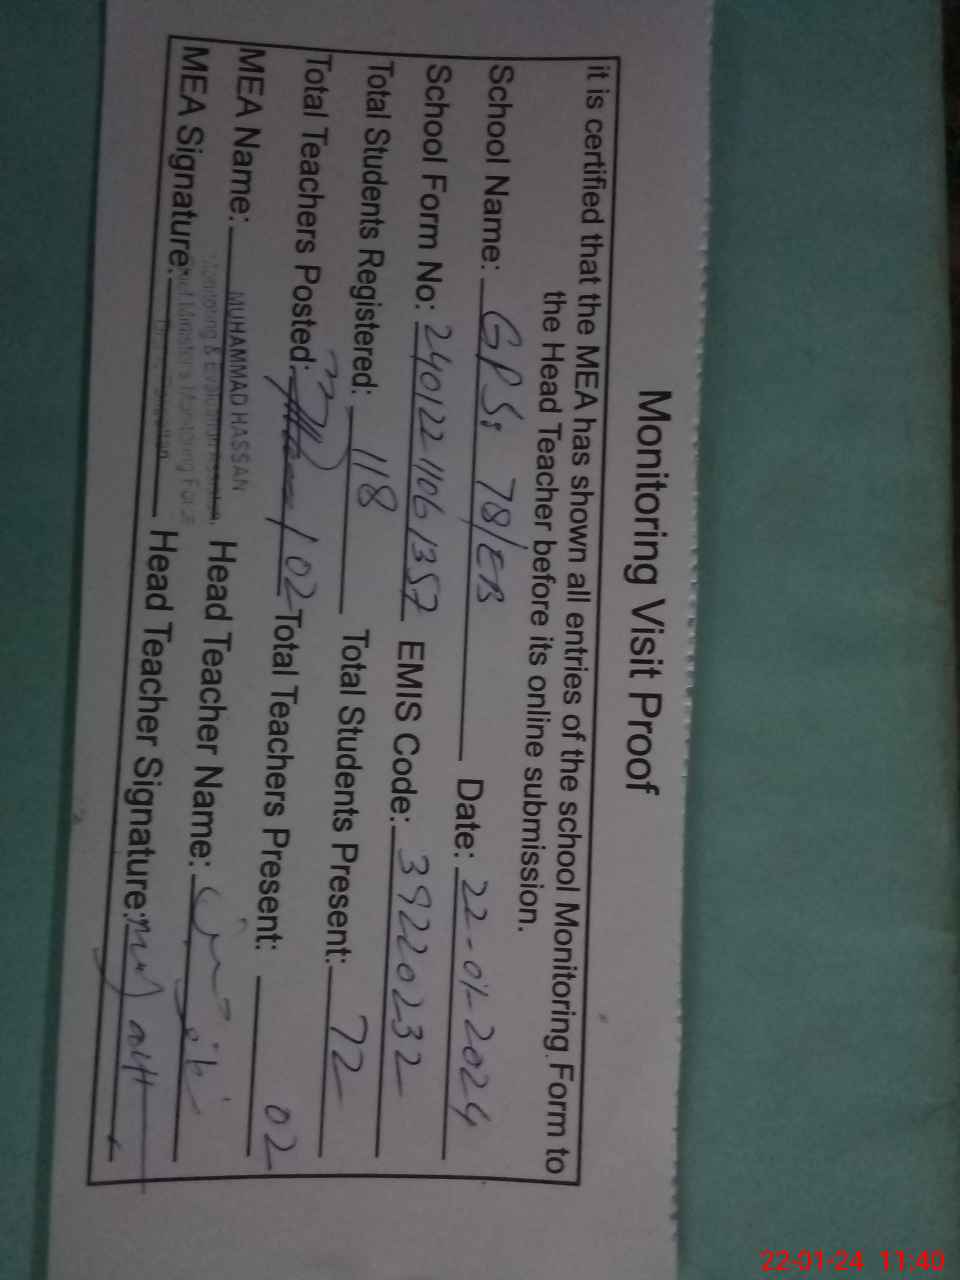 Monitoring Visit Proof
it is certified that the MEA has shown all entries of the school Monitoring Form to
the Head Teacher before its online submission.
School Name: GPS: 78/EB Date: 22-01-2024
School Form No: 240122-1106 1357 EMIS Code: 39220232
Total Students Registered: 118 Total Students Present: 72
Total Teachers Posted: 02 Total Teachers Present: 02
MEA Name: MUHAMMAD HASSAN Head Teacher Name:
Monitoring & Evaluation
MEA Signature: Chief Minister's Monitoring Force Head Teacher Signature:
22-01-24 11:40